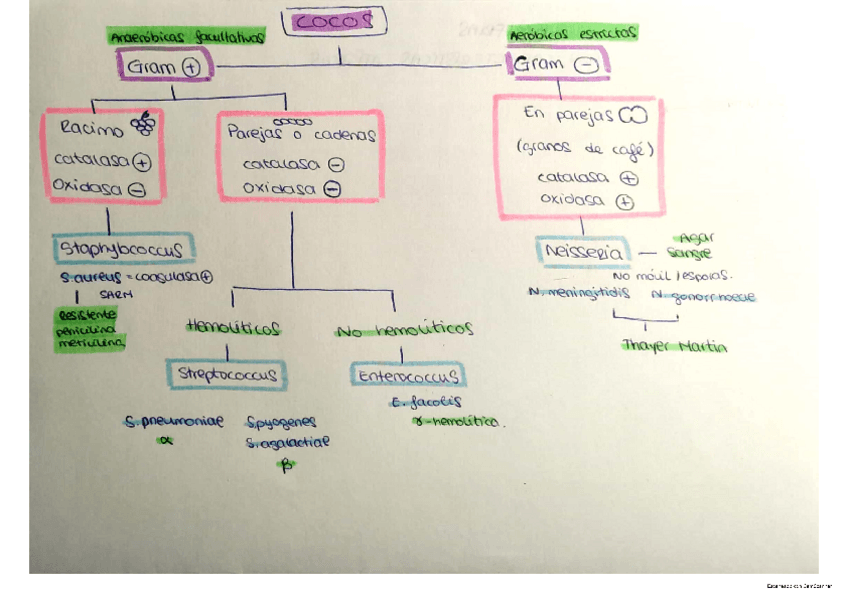 COCOS
Anaeróbicas facultativas
Aeróbicas estrictas
Gram +
Gram -
Racimo
catalasa +
Oxidasa -
Parejas o cadenas
catalasa -
Oxidasa -
En parejas
(granos de café)
catalasa +
oxidasa +
Staphylococcus
S.aureus = coagulasa +
SARM
Resistente
penicilina
meticilina
Neisseria — Agar
Sangre
No móvil / esporas.
N. meningitidis N. gonorrhoeae
Thayer Martin
Hemolíticos
No hemolíticos
Streptococcus
Enterococcus
S.pneumoniae
α
S.pyogenes
S.agalactiae
β
E. facalis
γ-hemolítica.
Escaneado con CamScanner